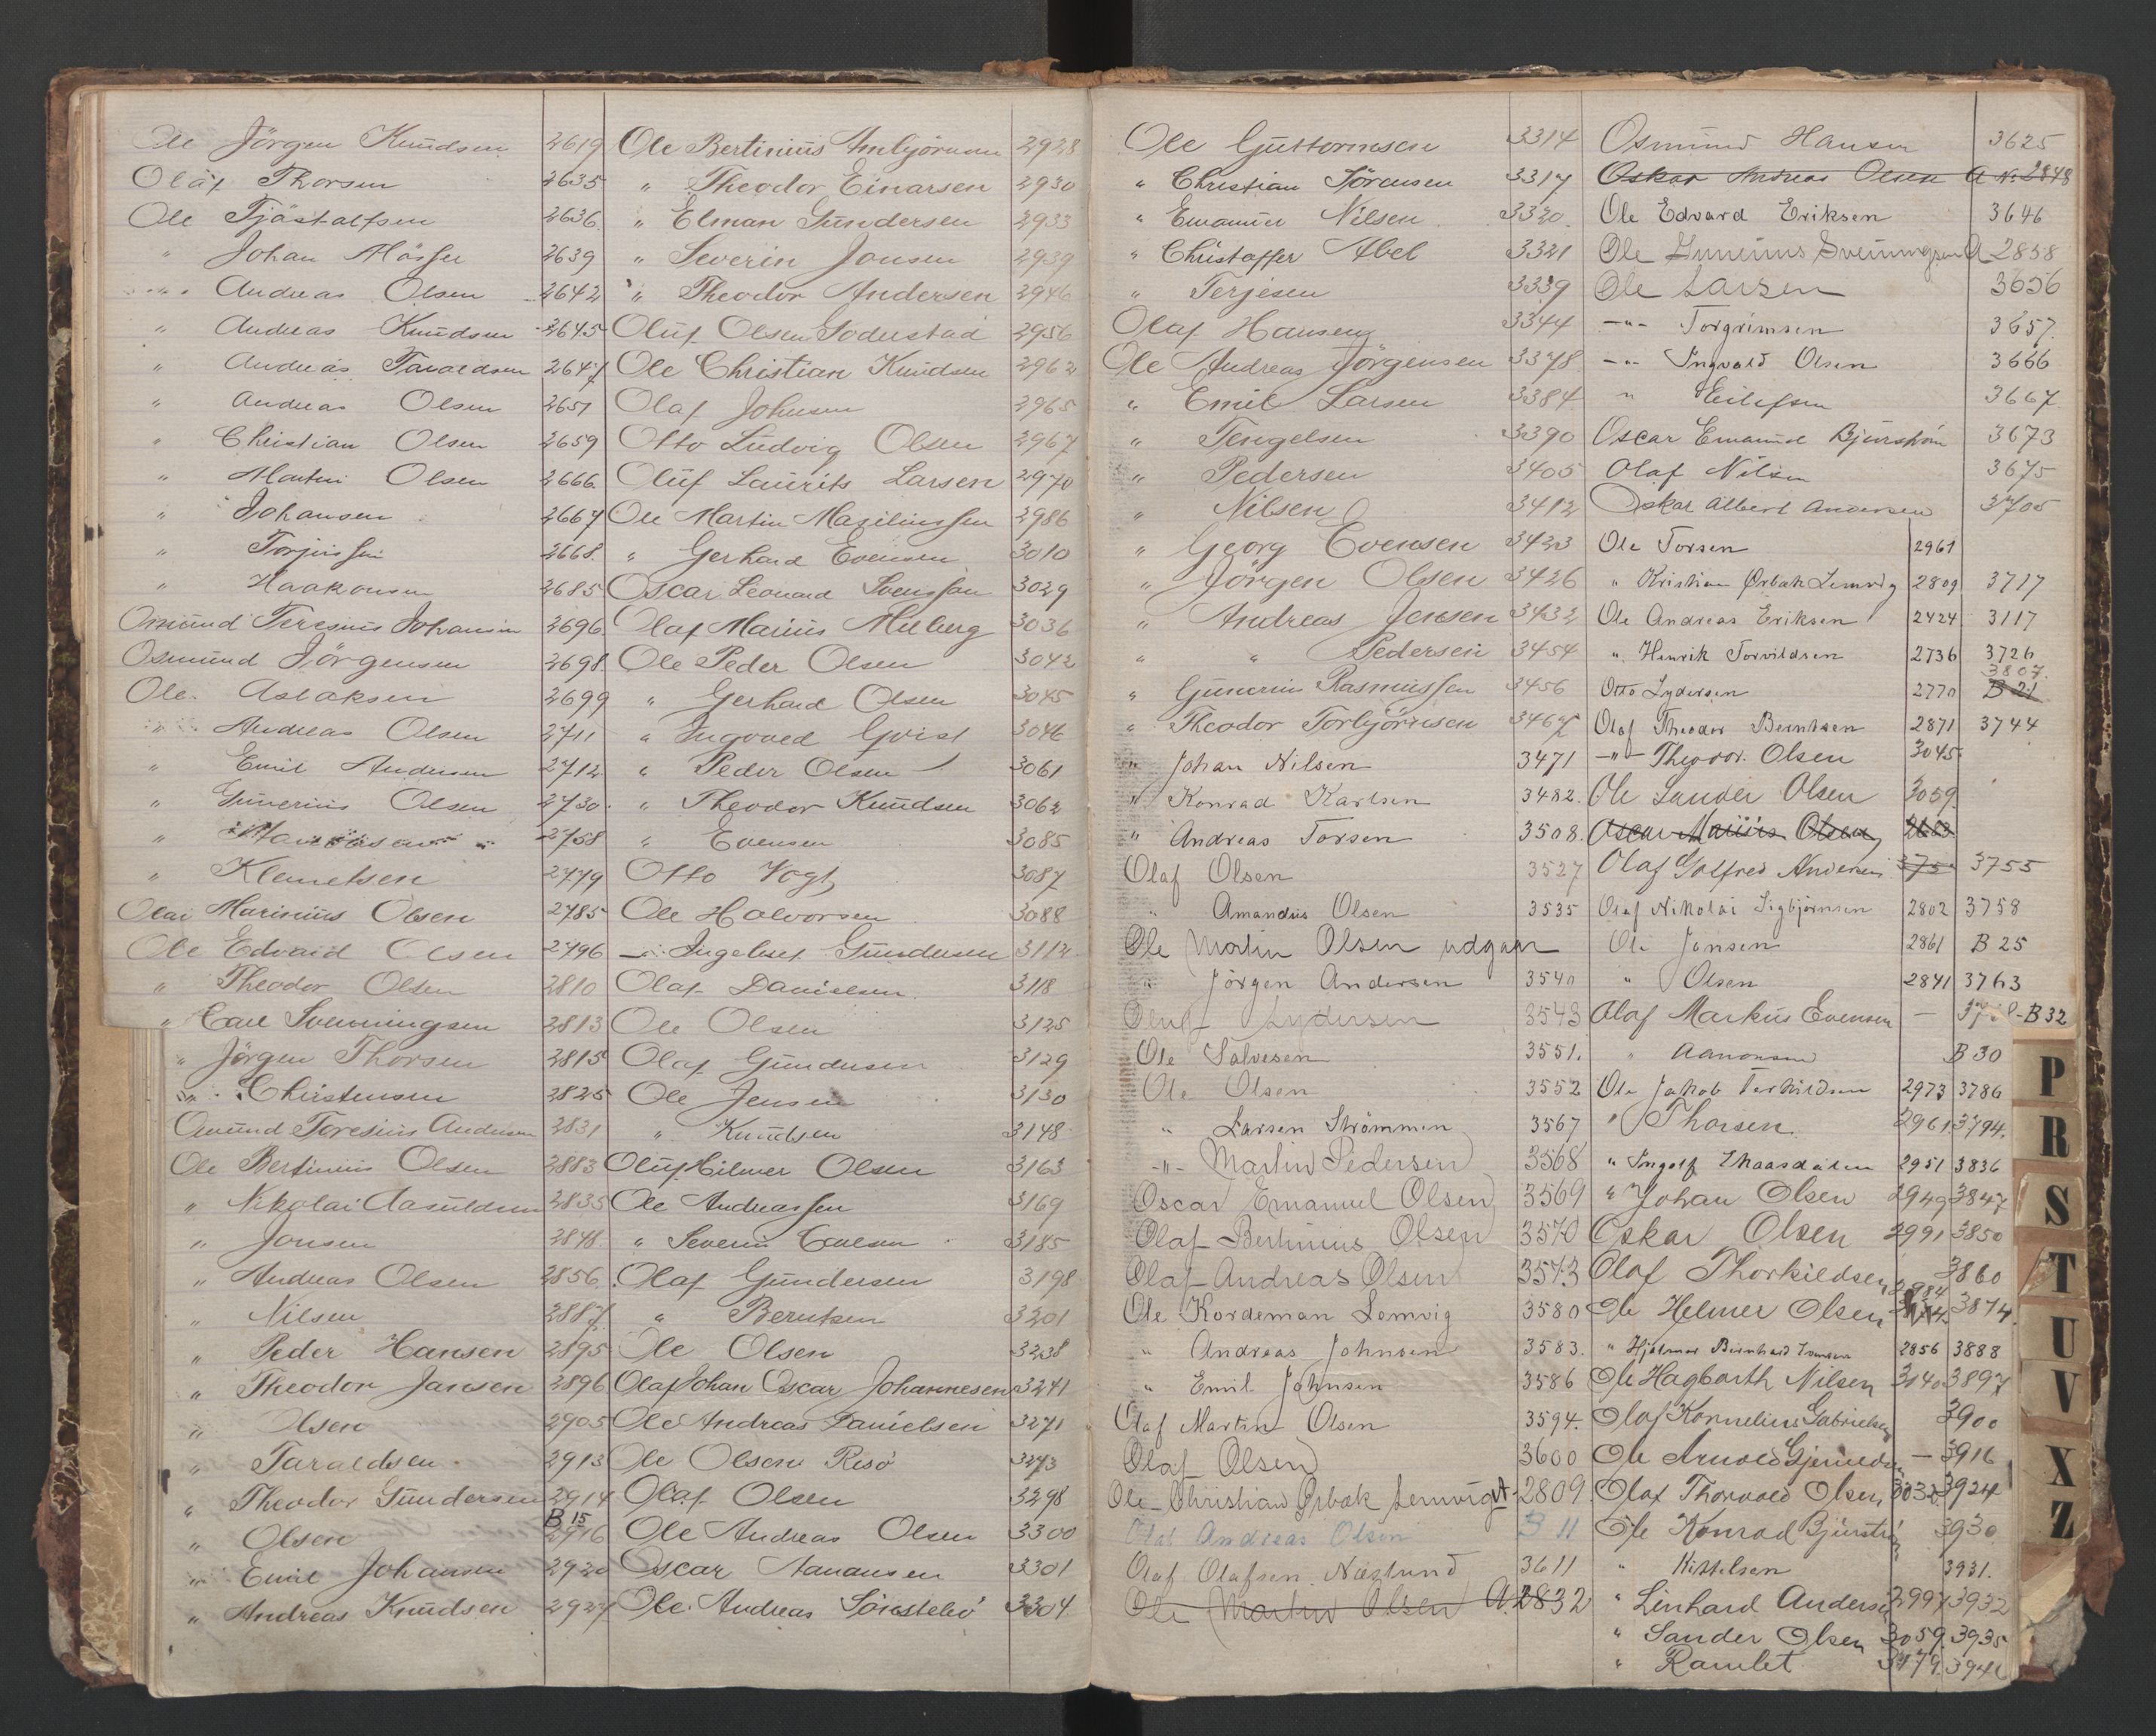 Ole Jörgen Knudsen 2619
Olaf Thorsen 2635
Ole Tjöstolfsen 2636
" Johan Hösser 2639
" Andreas Olsen 2642
" Andreas Knudsen 2645
" Andreas Taraldsen 2647
" Andreas Olsen 2651
" Christian Olsen 2659
" Martin Olsen 2666
" Johansen 2667
" Torjussen 2668
" Haakonsen 2685
Omund Teresius Johansen 2696
Osmund Jörgensen 2698
Ole Aslaksen 2699
" Andreas Olsen 2711
" Emil Andersen 2712
" Gunerius Olsen 2730
" 2758
" Klemetsen 2779
Olai Marinius Olsen 2785
Ole Edvard Olsen 2796
" Theodor Olsen 2810
" Carl Svenningsen 2813
" Jörgen Thorsen 2815
" Christensen 2825
Omund Toresius Andersen 2831
Ole Bertinius Olsen 2883
" Nikolai Aasuldsen 2835
" Jonsen 2848
" Andreas Olsen 2856
" Nilsen 2887
" Peder Hansen 2895
" Theodor Jansen 2896
" Olsen 2905
" Taraldsen 2913
" Theodor Gundersen 2914
" Olsen B 15 2916
" Emil Johansen 2920
" Andreas Knudsen 2927
Ole Bertinius Anbjörnsen 2928
" Theodor Einarsen 2930
" Elman Gundersen 2933
" Severin Jonsen 2939
" Theodor Andersen 2946
Oluf Olsen Soderstad 2956
Ole Christian Knudsen 2962
Olaf Johnsen 2965
Otto Ludvig Olsen 2967
Oluf Laurits Larsen 2970
Ole Martin Maziliussen 2986
" Gerhard Evensen 3010
Oscar Leonard Svenssen 3029
Olaf Marius Milberg 3036
Ole Peder Olsen 3042
" Gerhard Olsen 3045
" Ingvald Qvist 3046
" Peder Olsen 3061
" Theodor Knudsen 3062
" Evensen 3085
Otto Vogt 3087
Ole Halvorsen 3088
" Ingebret Gundersen 3112
Olaf Danielsen 3118
Ole Olsen 3125
Olaf Gundersen 3129
Ole Jensen 3130
" Knudsen 3148
Oluf Hilmer Olsen 3163
Ole Andreassen 3169
" Severin Evensen 3185
Olaf Gundersen 3198
" Berntsen 3201
Ole Olsen 3238
Olaf Johan Oscar Johannesen 3241
Ole Andreas Danielsen 3271
Ole Olsen Risö 3273
Olaf Olsen 3298
Ole Andreas Olsen 3300
Oscar Aanansen 3301
Ole Andreas Sörestebö 3304
Ole Guttormsen 3314
" Christian Sörensen 3317
" Emanuel Nilsen 3320
" Christoffer Abel 3321
" Terjesen 3339
Olaf Hansen 3344
Ole Andreas Jörgensen 3378
" Emil Larsen 3384
" Tengelsen 3390
" Pedersen 3405
" Nilsen 3412
" Georg Evensen 3423
" Jörgen Olsen 3426
" Andreas Jensen 3432
" " Pedersen 3454
" Gunerius Rasmussen 3456
" Theodor Torbjörnsen 3467
" Johan Nilsen 3471
" Konrad Karlsen 3482
" Andreas Torsen 3508
Olaf Olsen 3527
" Amandus Olsen 3535
Ole Martin Olsen udgaar
" Jörgen Andersen 3540
Oluf Lydersen 3543
Ole Salvesen 3551
Ole Olsen 3552
" Larsen Strömmen 3567
-"- Martin Pedersen 3568
Oscar Emanuel Olsen 3569
Olaf Bertinius Olsen 3570
Olaf Andreas Olsen 3573
Ole Kordeman Lemvig 3580
" Andreas Johnsen 3583
" Emil Johnsen 3586
Olaf Martin Olsen 3594
Olaf Olsen 3600
Ole Christian Ørbæk Lemvig A 2809
Olaf Andreas Olsen B 11
Olaf Olafsen Næslund 3611
Ole Martin Olsen A 2832
Osmund Hansen 3625
Oskar Andreas Olsen A No 2848
Ole Edvard Eriksen 3646
Ole Gunerius Sveinungsen A 2858
Ole Larsen 3656
-"- Torgrimsen 3657
-"- Ingvald Olsen 3666
" Eilefsen 3667
Oscar Emanuel Bjurström 3673
Olaf Nilsen 3675
Oskar Albert Andersen 3705
Ole Torsen 2961
" Kristian Ørbæk Lemvig 2809 3717
Ole Andreas Eriksen 2424 3117
" Henrik Torvildsen 2736 3726
Otto Lydersen 2770 3807 B 21
Olaf Theodor Berntsen 2871 3744
-"- Theodor Olsen 3045
Ole Sander Olsen 3059
Oscar Marius Olsen
Olaf Golfred Andersen 375 3755
Olaf Nikolai Sigbjørnsen 2802 3758
Ole Jansen 2861 B 25
" Olsen 2841 3763
Olaf Markus Evensen — B 32
" Aanonsen B 30
Ole Jakob Terkildsen 2973 3786
" Thorsen 2961 3794
" Ingolf Thaasdalen 2951 3836
" Johan Olsen 2949 3847
Oskar Olsen 2991 3850
Olaf Thorkildsen 3860
Ole Helmer Olsen 2984 3874
" Hjalmar Bernhard 2856 3888
Ole Hagbarth Nilsen 3040 3897
Olaf Kornelius Gabrielsen 3900
Ole Arnold Gjerulds — 3916
Olaf Thorvald Olsen 3032 3924
Ole Konrad Bjurström 3930
" Kittelsen 3931
" Linhard Andersen 2997 3932
" Sander Olsen 3059 3935
" Ramlet 3179 3946
P
R
S
T
U
V
X
Z